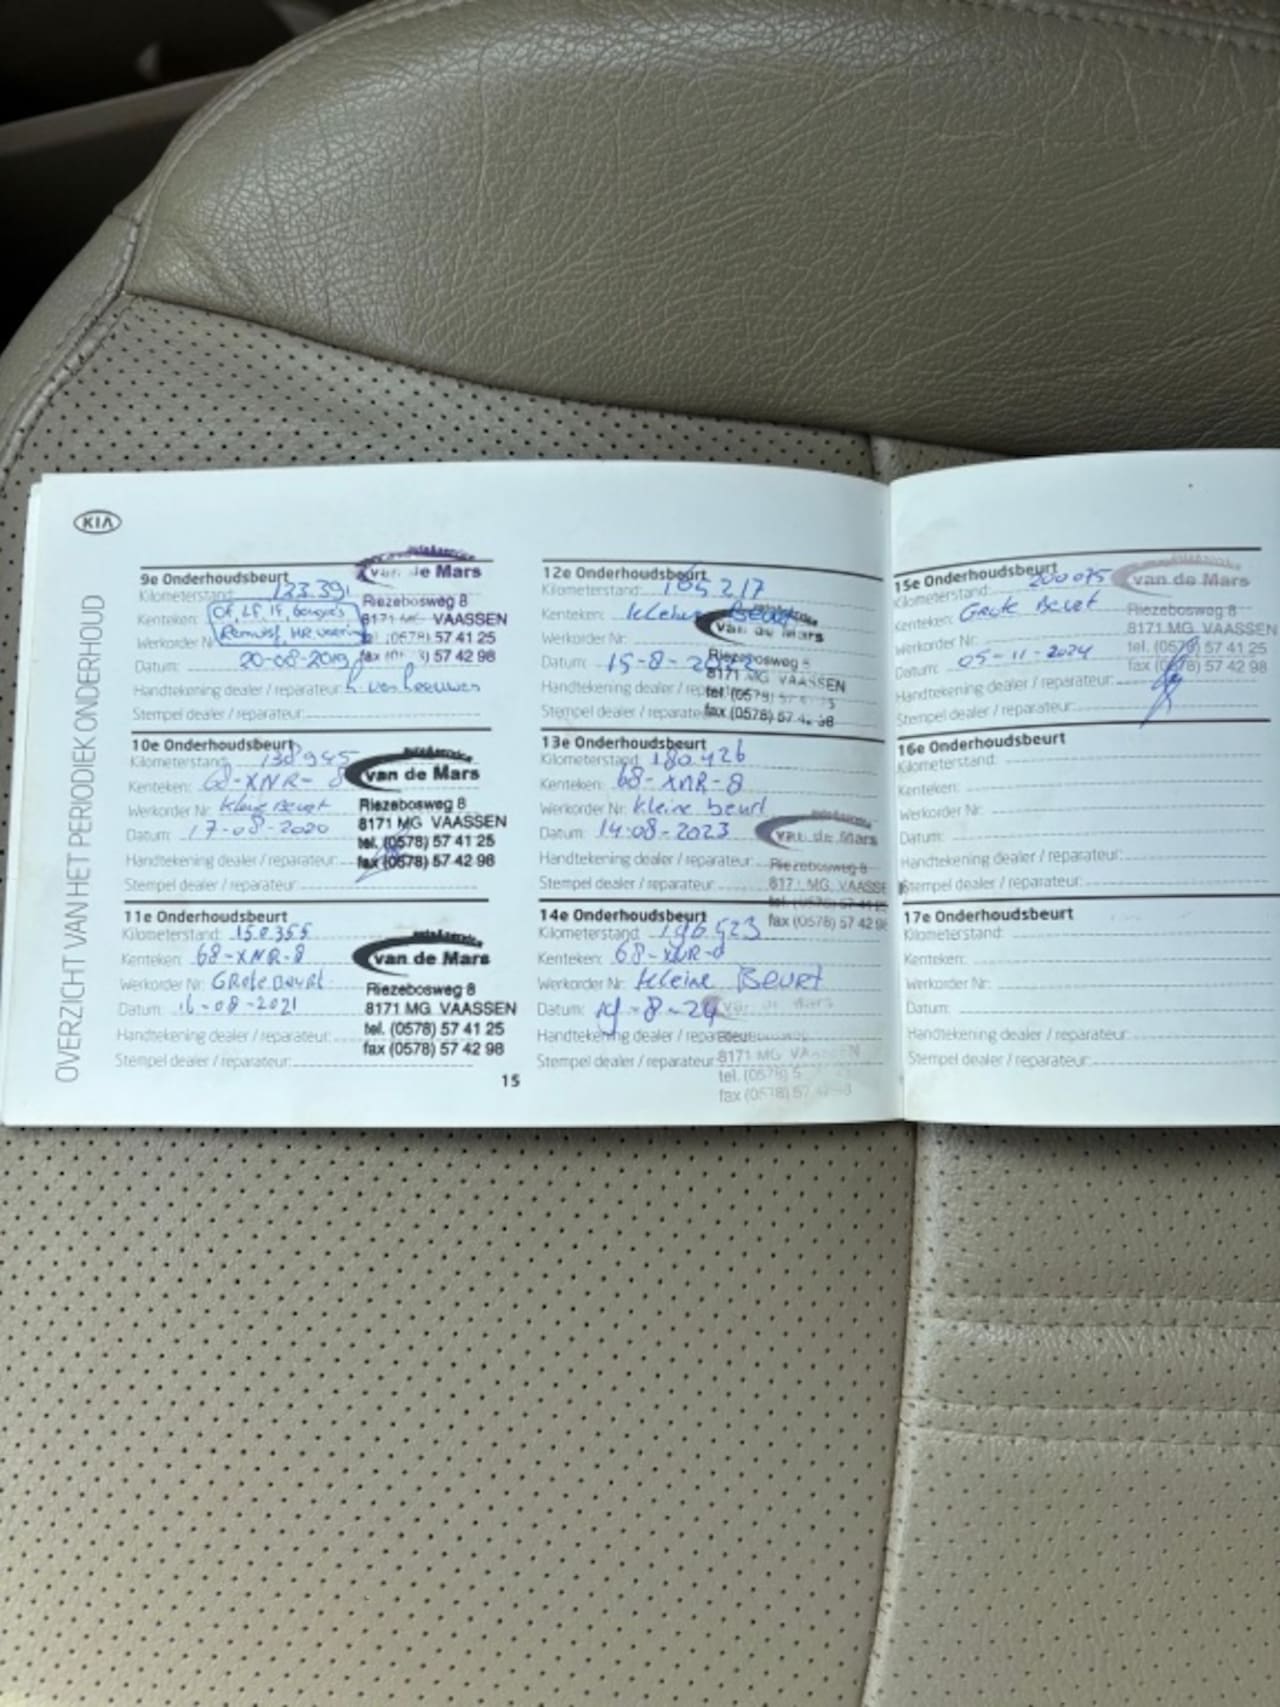 KIA
OVERZICHT VAN HET PERIODIEK ONDERHOUD
9e Onderhoudsbeurt
Kilometerstand: 123.391
Kenteken: OF, LF, IF, bougie's
Werkorder Nr Remvlst, HR
Datum: 20-08-2019
Handtekening dealer / reparateur:
Stempel dealer / reparateur:
auto&service
van de Mars
Riezebosweg 8
8171 MG VAASSEN
tel (0578) 57 41 25
fax 57 42 98
10e Onderhoudsbeurt
Kilometerstand: 138945
Kenteken: 68-XNR-8
Werkorder Nr: Kleine Beurt
Datum: 17-08-2020
Handtekening dealer / reparateur:
Stempel dealer / reparateur:
auto&service
van de Mars
Riezebosweg 8
8171 MG VAASSEN
tel. (0578) 57 41 25
fax (0578) 57 42 98
11e Onderhoudsbeurt
Kilometerstand: 150.355
Kenteken: 68-XNR-8
Werkorder Nr: GRote Beurt
Datum: 16-08-2021
Handtekening dealer / reparateur:
Stempel dealer / reparateur:
auto&service
van de Mars
Riezebosweg 8
8171 MG VAASSEN
tel. (0578) 57 41 25
fax (0578) 57 42 98
15
12e Onderhoudsbeurt
Kilometerstand: 165217
Kenteken: kleine Beurt
Werkorder Nr:
Datum: 15-8-2022
Handtekening dealer / reparateur
Stempel dealer / reparateur
van de Mars
Riezebosweg 8
8171 MG VAASSEN
tel. (0578) 57
fax (0578) 57 98
13e Onderhoudsbeurt
Kilometerstand: 180.426
Kenteken: 68-XNR-8
Werkorder Nr: kleine beurt
Datum: 14-08-2023
Handtekening dealer / reparateur:
Stempel dealer / reparateur:
van de Mars
Riezebosweg 8
8171 MG VAASSE
tel. (0578) 57 41 25
fax (0578) 57 42 98
14e Onderhoudsbeurt
Kilometerstand: 196.523
Kenteken: 68-XNR-8
Werkorder Nr: kleine Beurt
Datum: 19-8-24
Handtekening dealer / reparateur
Stempel dealer / reparateur
van de Mars
8171 MG VAASSEN
tel. (0578) 5
fax (0578) 57
15e Onderhoudsbeurt
Kilometerstand: 200075
Kenteken: Grote Beurt
Werkorder Nr:
Datum: 05-11-2024
Handtekening dealer / reparateur:
Stempel dealer / reparateur:
van de Mars
Riezebosweg 8
8171 MG VAASSEN
tel. (0578) 57 41 25
fax (0578) 57 42 98
16e Onderhoudsbeurt
Kilometerstand:
Kenteken:
Werkorder Nr:
Datum:
Handtekening dealer / reparateur:
Stempel dealer / reparateur:
17e Onderhoudsbeurt
Kilometerstand:
Kenteken:
Werkorder Nr:
Datum:
Handtekening dealer / reparateur:
Stempel dealer / reparateur: